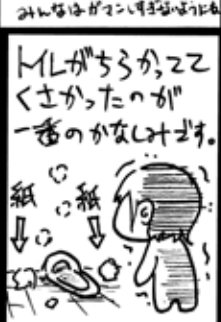 みんなはガマンしすぎないようにね
トイレがちらかってて
くさかったのが
一番のかなしみです。
紙
紙